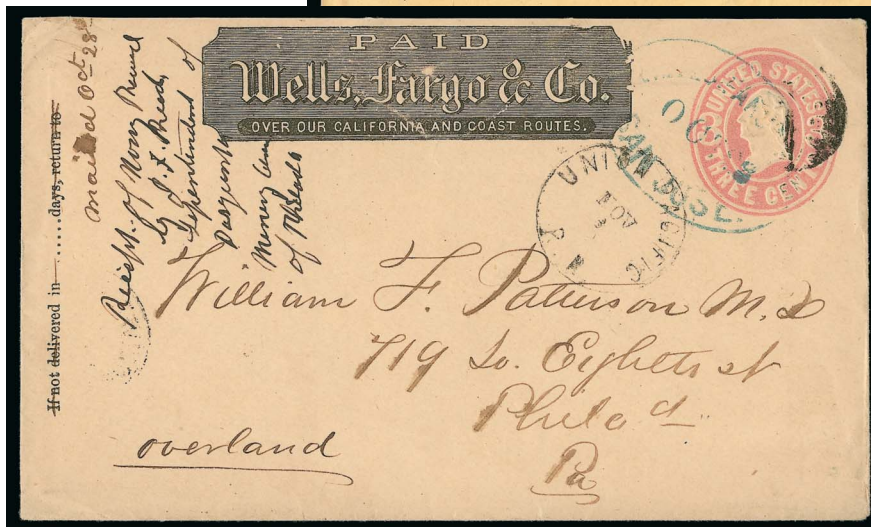 PAID
Wells, Fargo & Co.
OVER OUR CALIFORNIA AND COAST ROUTES.
UNITED STATES
THREE CENTS
OCT
SAN JOSE
UNION PACIFIC
NOV
R
If not delivered in ..... days, return to
mailed Oct 28
Receipt of money
by J. F.
of
Mining
of
William F. Paterson M. D
719 So. Eighth st
Philad
Pa
overland